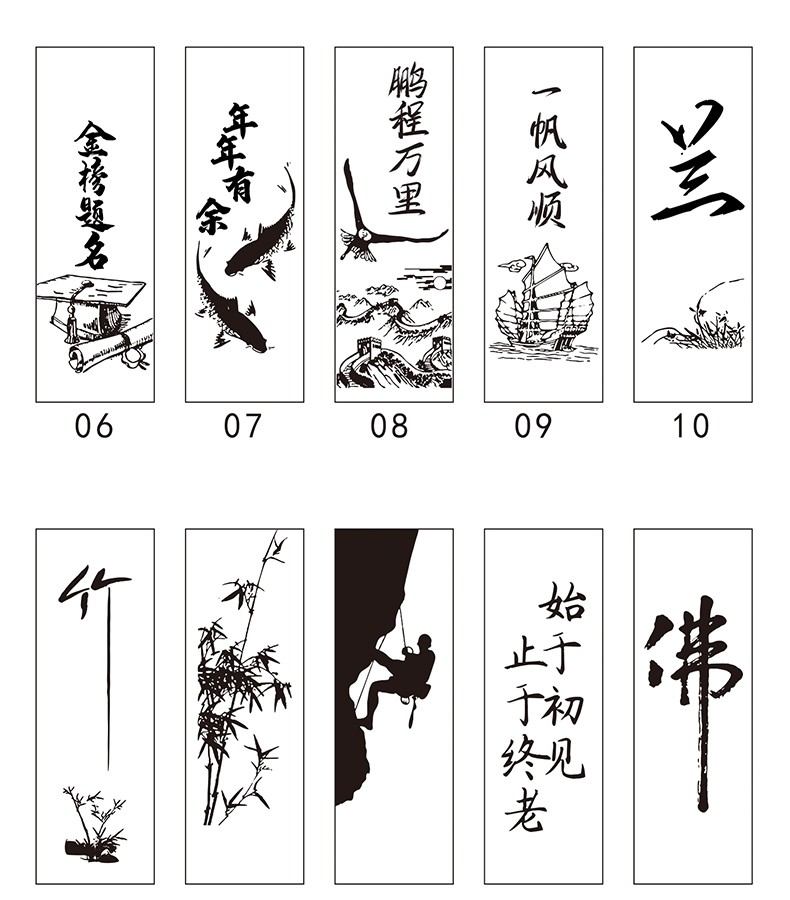 金榜题名
年年有余
鹏程万里
一帆风顺
兰
06
07
08
09
10
竹
始于初见
止于终老
佛